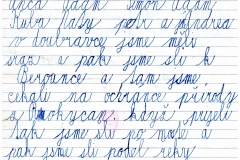 Anča Adam Šimon Adam
Kuba Vlasy petr a Andrea
v doubravce jsme měli
sraz a pak jsme šli k
Beroance a tam jsme
čekali na ochrance přírody
z Rokycan když prijeli
tak jsme šli po mostě a
pak jsme šli podél řeky